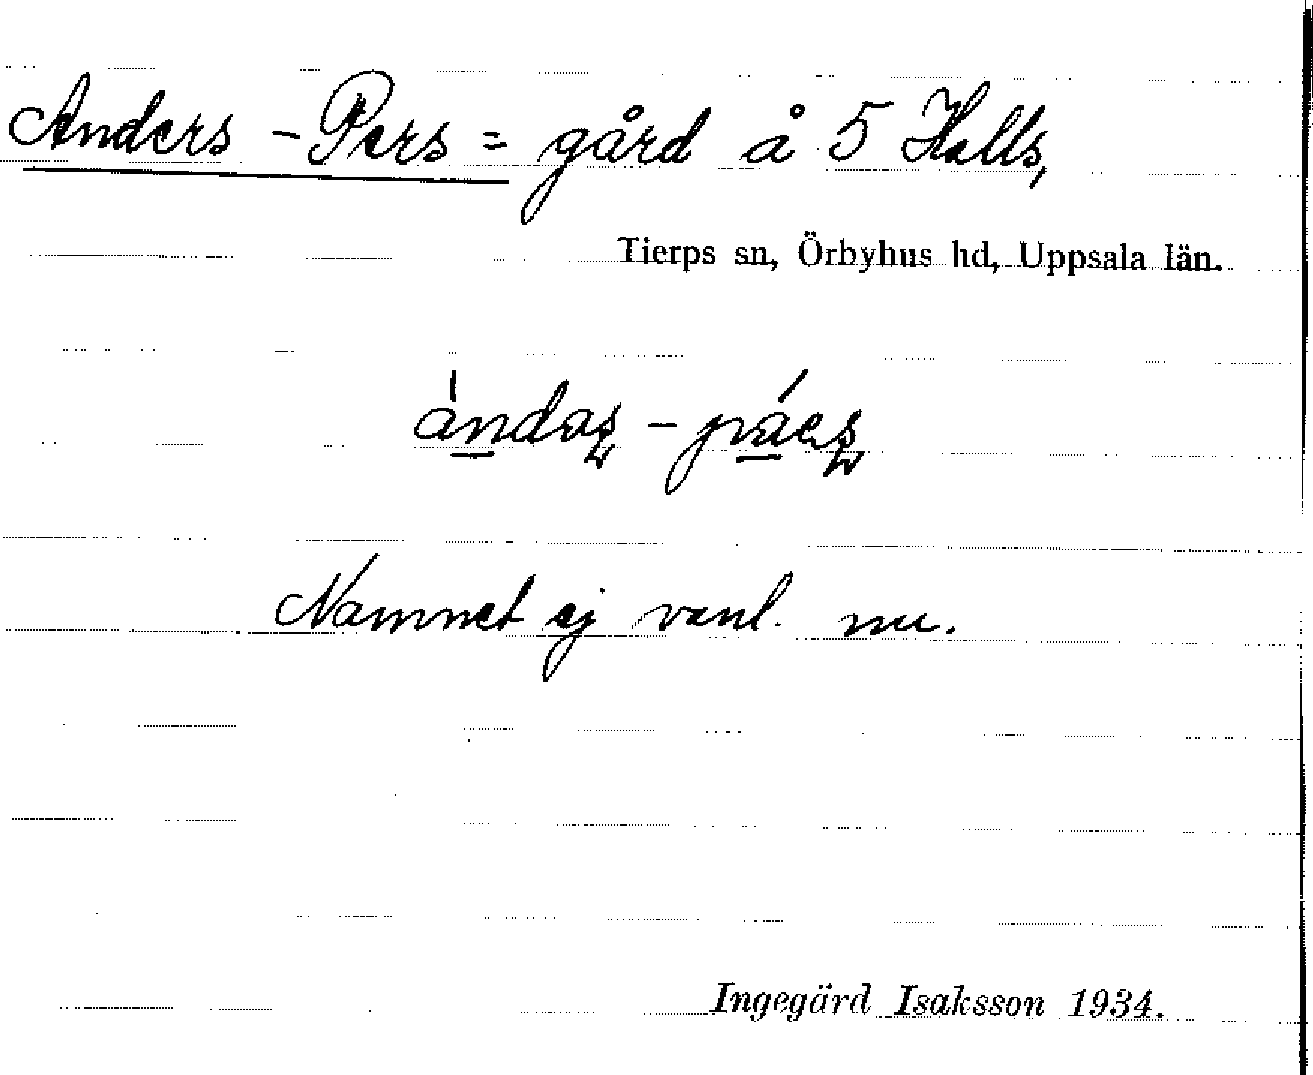 Anders-Pers = gård å 5 Halls,
Tierps sn, Örbyhus hd, Uppsala län.
ándas̩-páes̩
Namnet ej vanl. nu.
Ingegärd Isaksson 1934.